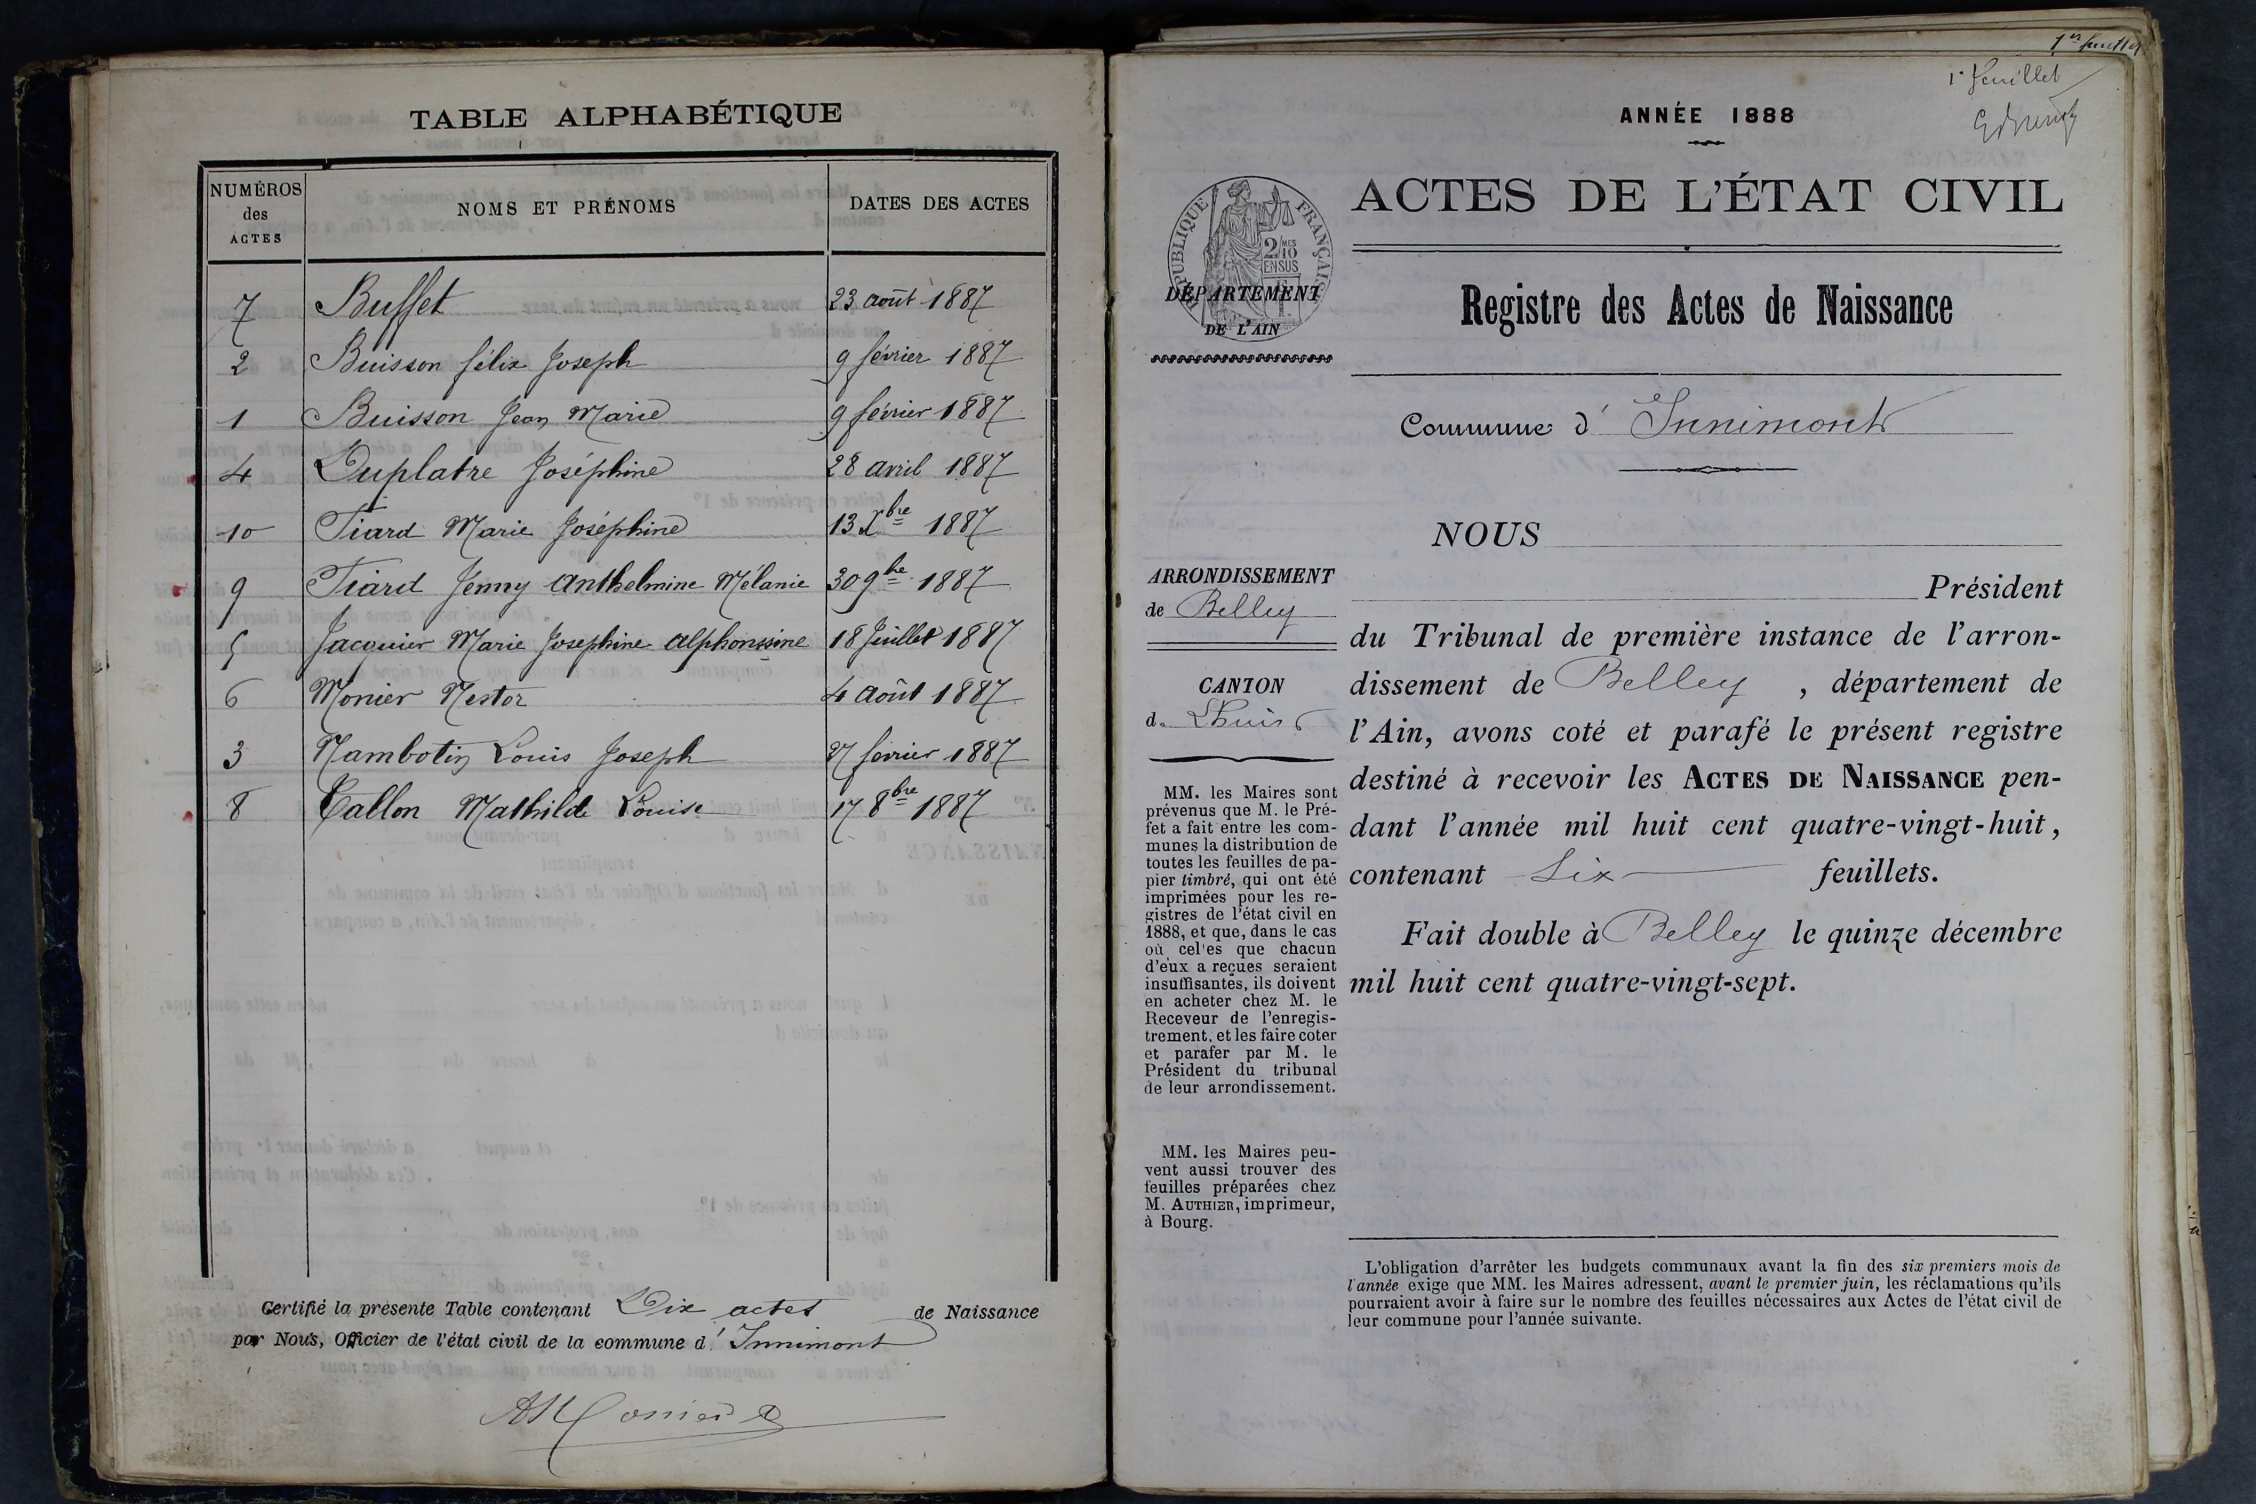 TABLE ALPHABÉTIQUE
NUMÉROS des ACTES NOMS ET PRÉNOMS DATES DES ACTES
7 Buffet 23 août 1887
2 Buisson félix Joseph 9 février 1887
1 Buisson Jean Marie 9 février 1887
4 Duplatre Joséphine 28 avril 1887
10 Tiard Marie Joséphine 13 Xbre 1887
9 Tiard Jenny Anthelmine Mélanie 30 9bre 1887
5 Jacquier Marie Josephine Alphonssine 18 Juillet 1887
6 Monier Nestor 4 août 1887
3 Nambotin Louis Joseph 27 fevrier 1887
8 Tallon Mathilde Louise 17 8bre 1887
Certifié la présente Table contenant Dix actes de Naissance
par Nous, Officier de l'état civil de la commune d' Innimont
1er feuillet
1r feuillet
ANNÉE 1888
ACTES DE L'ÉTAT CIVIL
RÉPUBLIQUE FRANÇAISE
2 MES 10
EN SUS
DÉPARTEMENT
DE L'AIN
Registre des Actes de Naissance
Commune d' Innimont
ARRONDISSEMENT
de Belley
CANTON
de Lhuis
MM. les Maires sont
prévenus que M. le Pré-
fet a fait entre les com-
munes la distribution de
toutes les feuilles de pa-
pier timbré, qui ont été
imprimées pour les re-
gistres de l'état civil en
1888, et que, dans le cas
où celles que chacun
d'eux a reçues seraient
insuffisantes, ils doivent
en acheter chez M. le
Receveur de l'enregis-
trement, et les faire coter
et parafer par M. le
Président du tribunal
de leur arrondissement.
MM. les Maires peu-
vent aussi trouver des
feuilles préparées chez
M. AUTHIER, imprimeur,
à Bourg.
NOUS
Président
du Tribunal de première instance de l'arron-
dissement de Belley , département de
l'Ain, avons coté et parafé le présent registre
destiné à recevoir les ACTES DE NAISSANCE pen-
dant l'année mil huit cent quatre-vingt-huit,
contenant Six feuillets.
Fait double à Belley le quinze décembre
mil huit cent quatre-vingt-sept.
L'obligation d'arrêter les budgets communaux avant la fin des six premiers mois de
l'année exige que MM. les Maires adressent, avant le premier juin, les réclamations qu'ils
pourraient avoir à faire sur le nombre des feuilles nécessaires aux Actes de l'état civil de
leur commune pour l'année suivante.